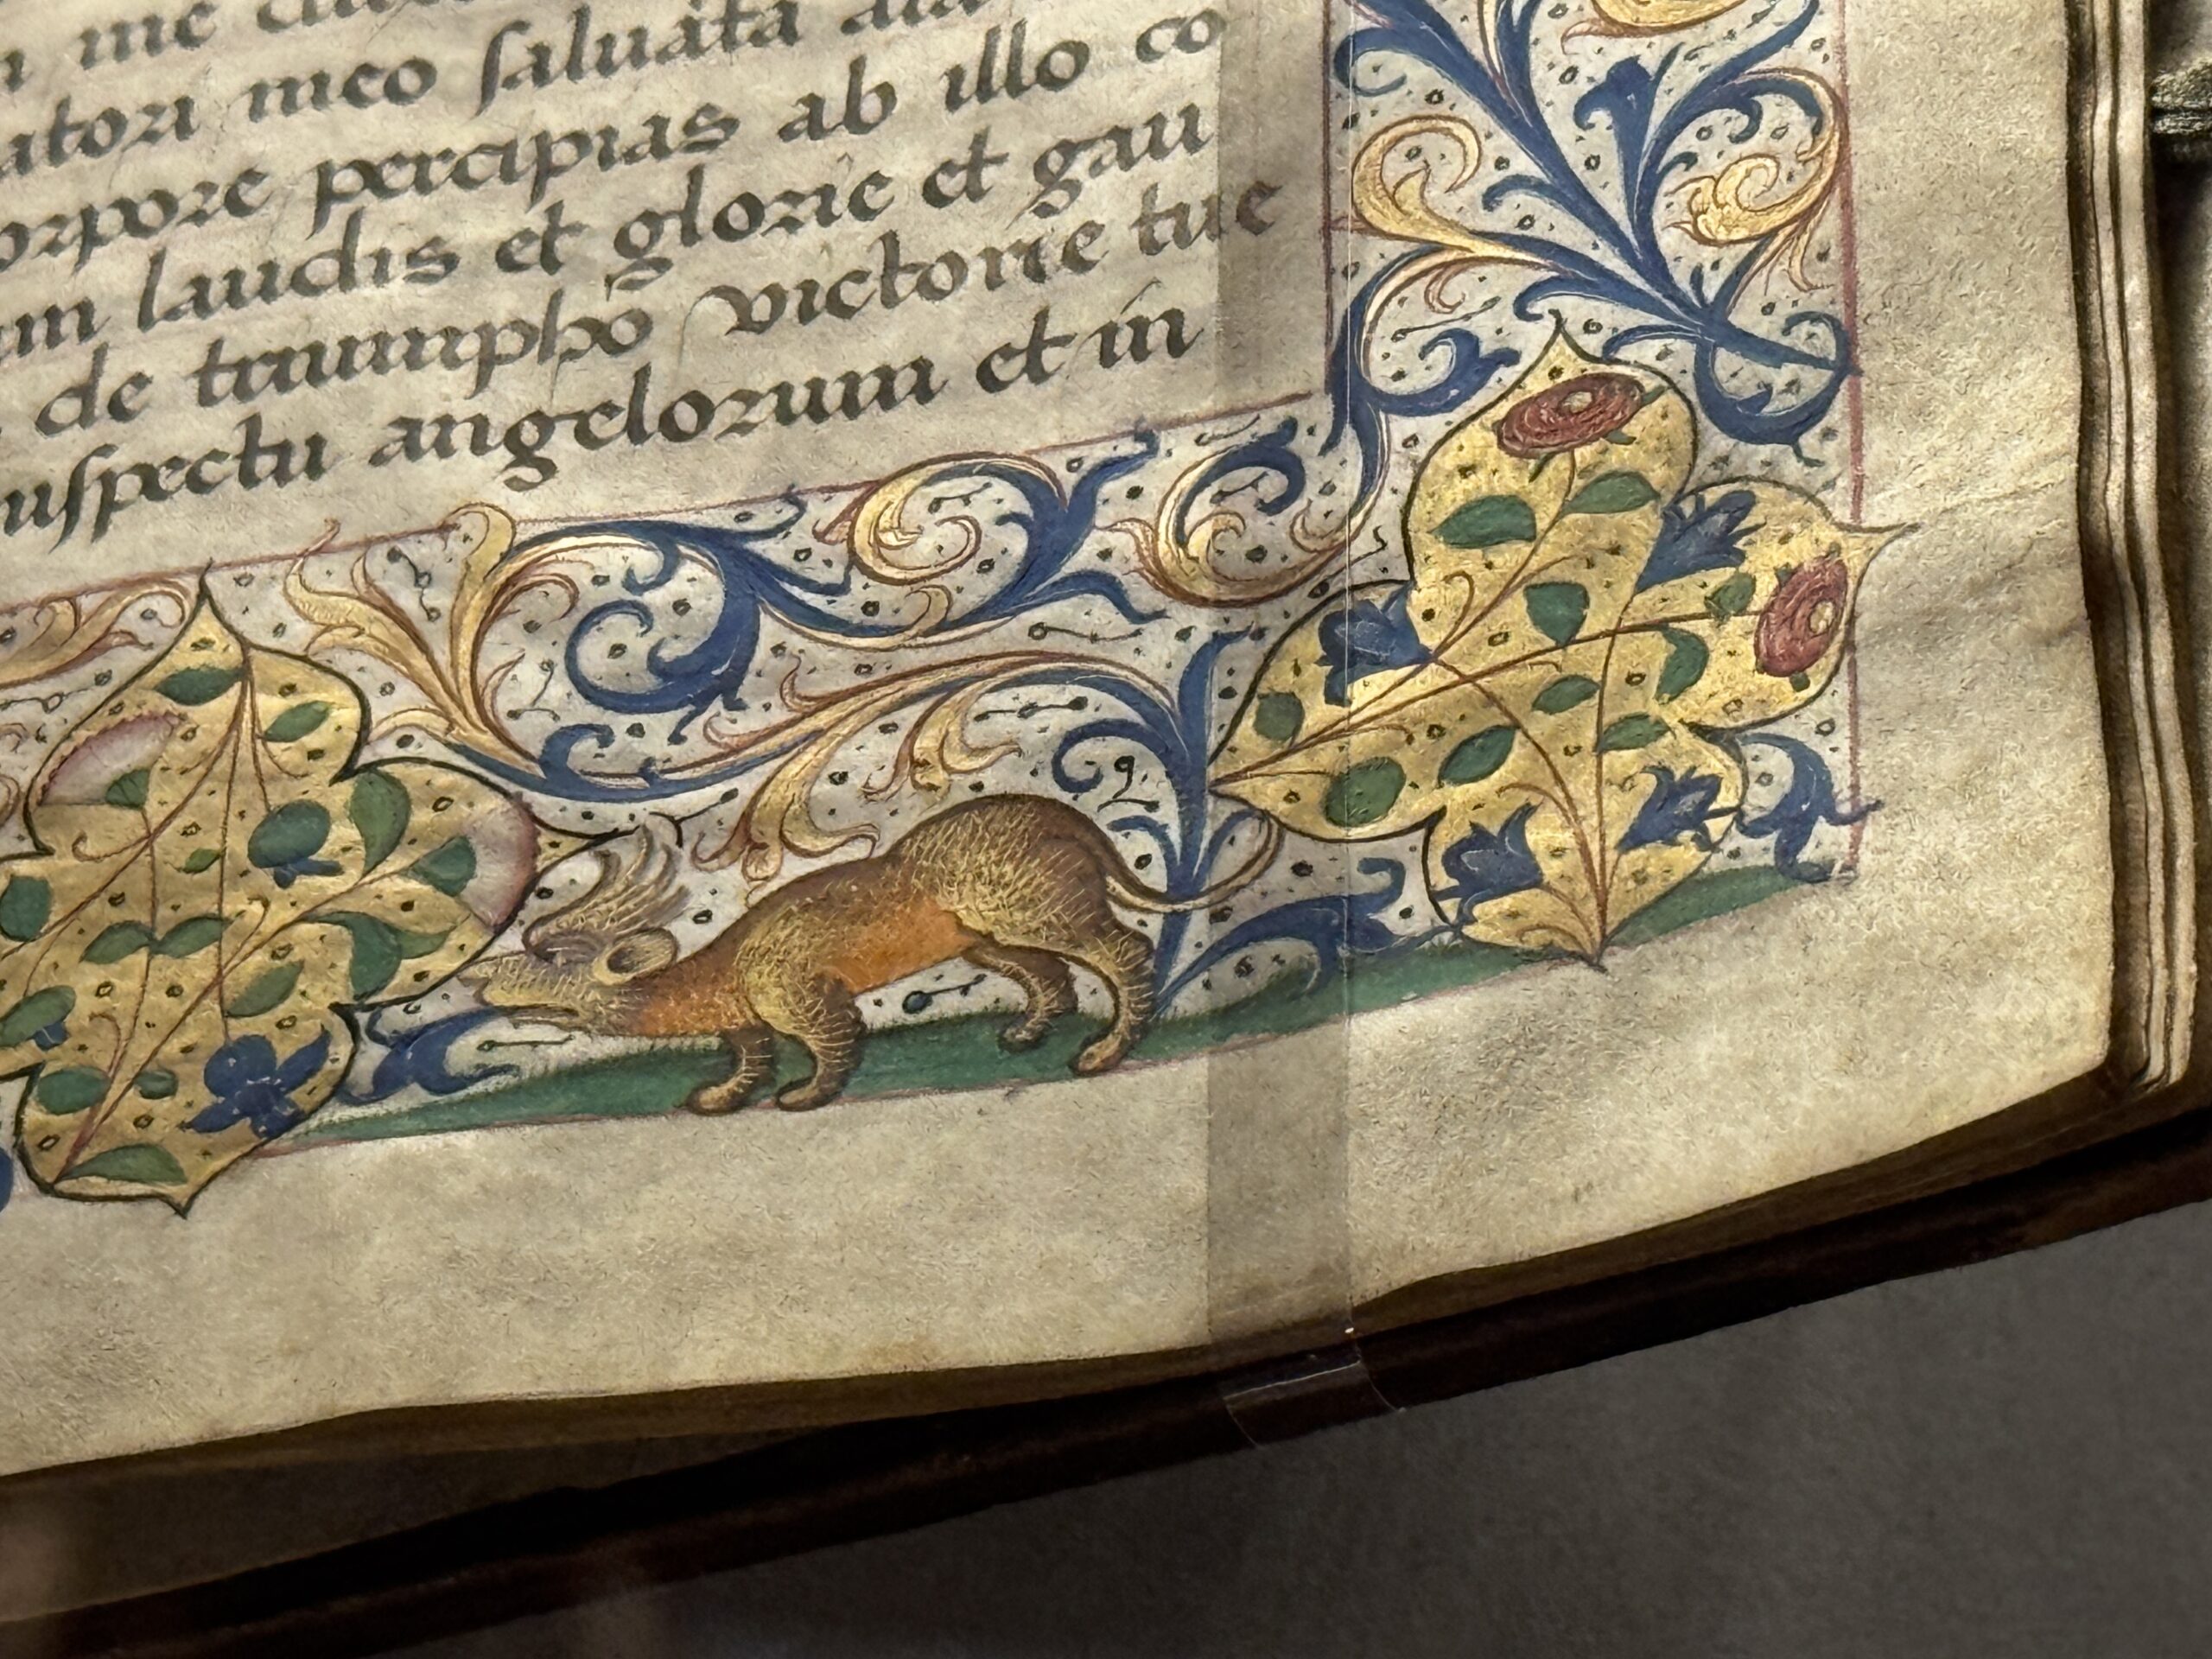 me
atori meo saluata
orpore percipias ab illo co
m laudis et glorie et gau
de triumpho victorie tue
uspectu angelorum et in